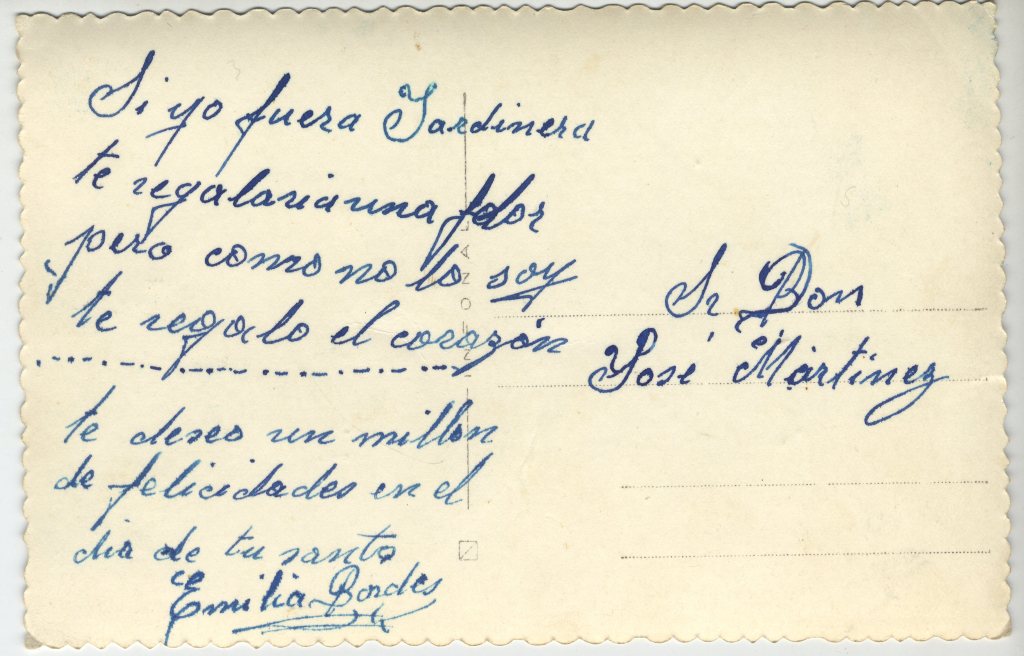 Si yo fuera Jardinera
te regalaria una flor
pero como no lo soy
te regalo el corazón
te deseo un millon
de felicidades en el
dia de tu santo
Emilia Bordes
Sr Don
José Martinez